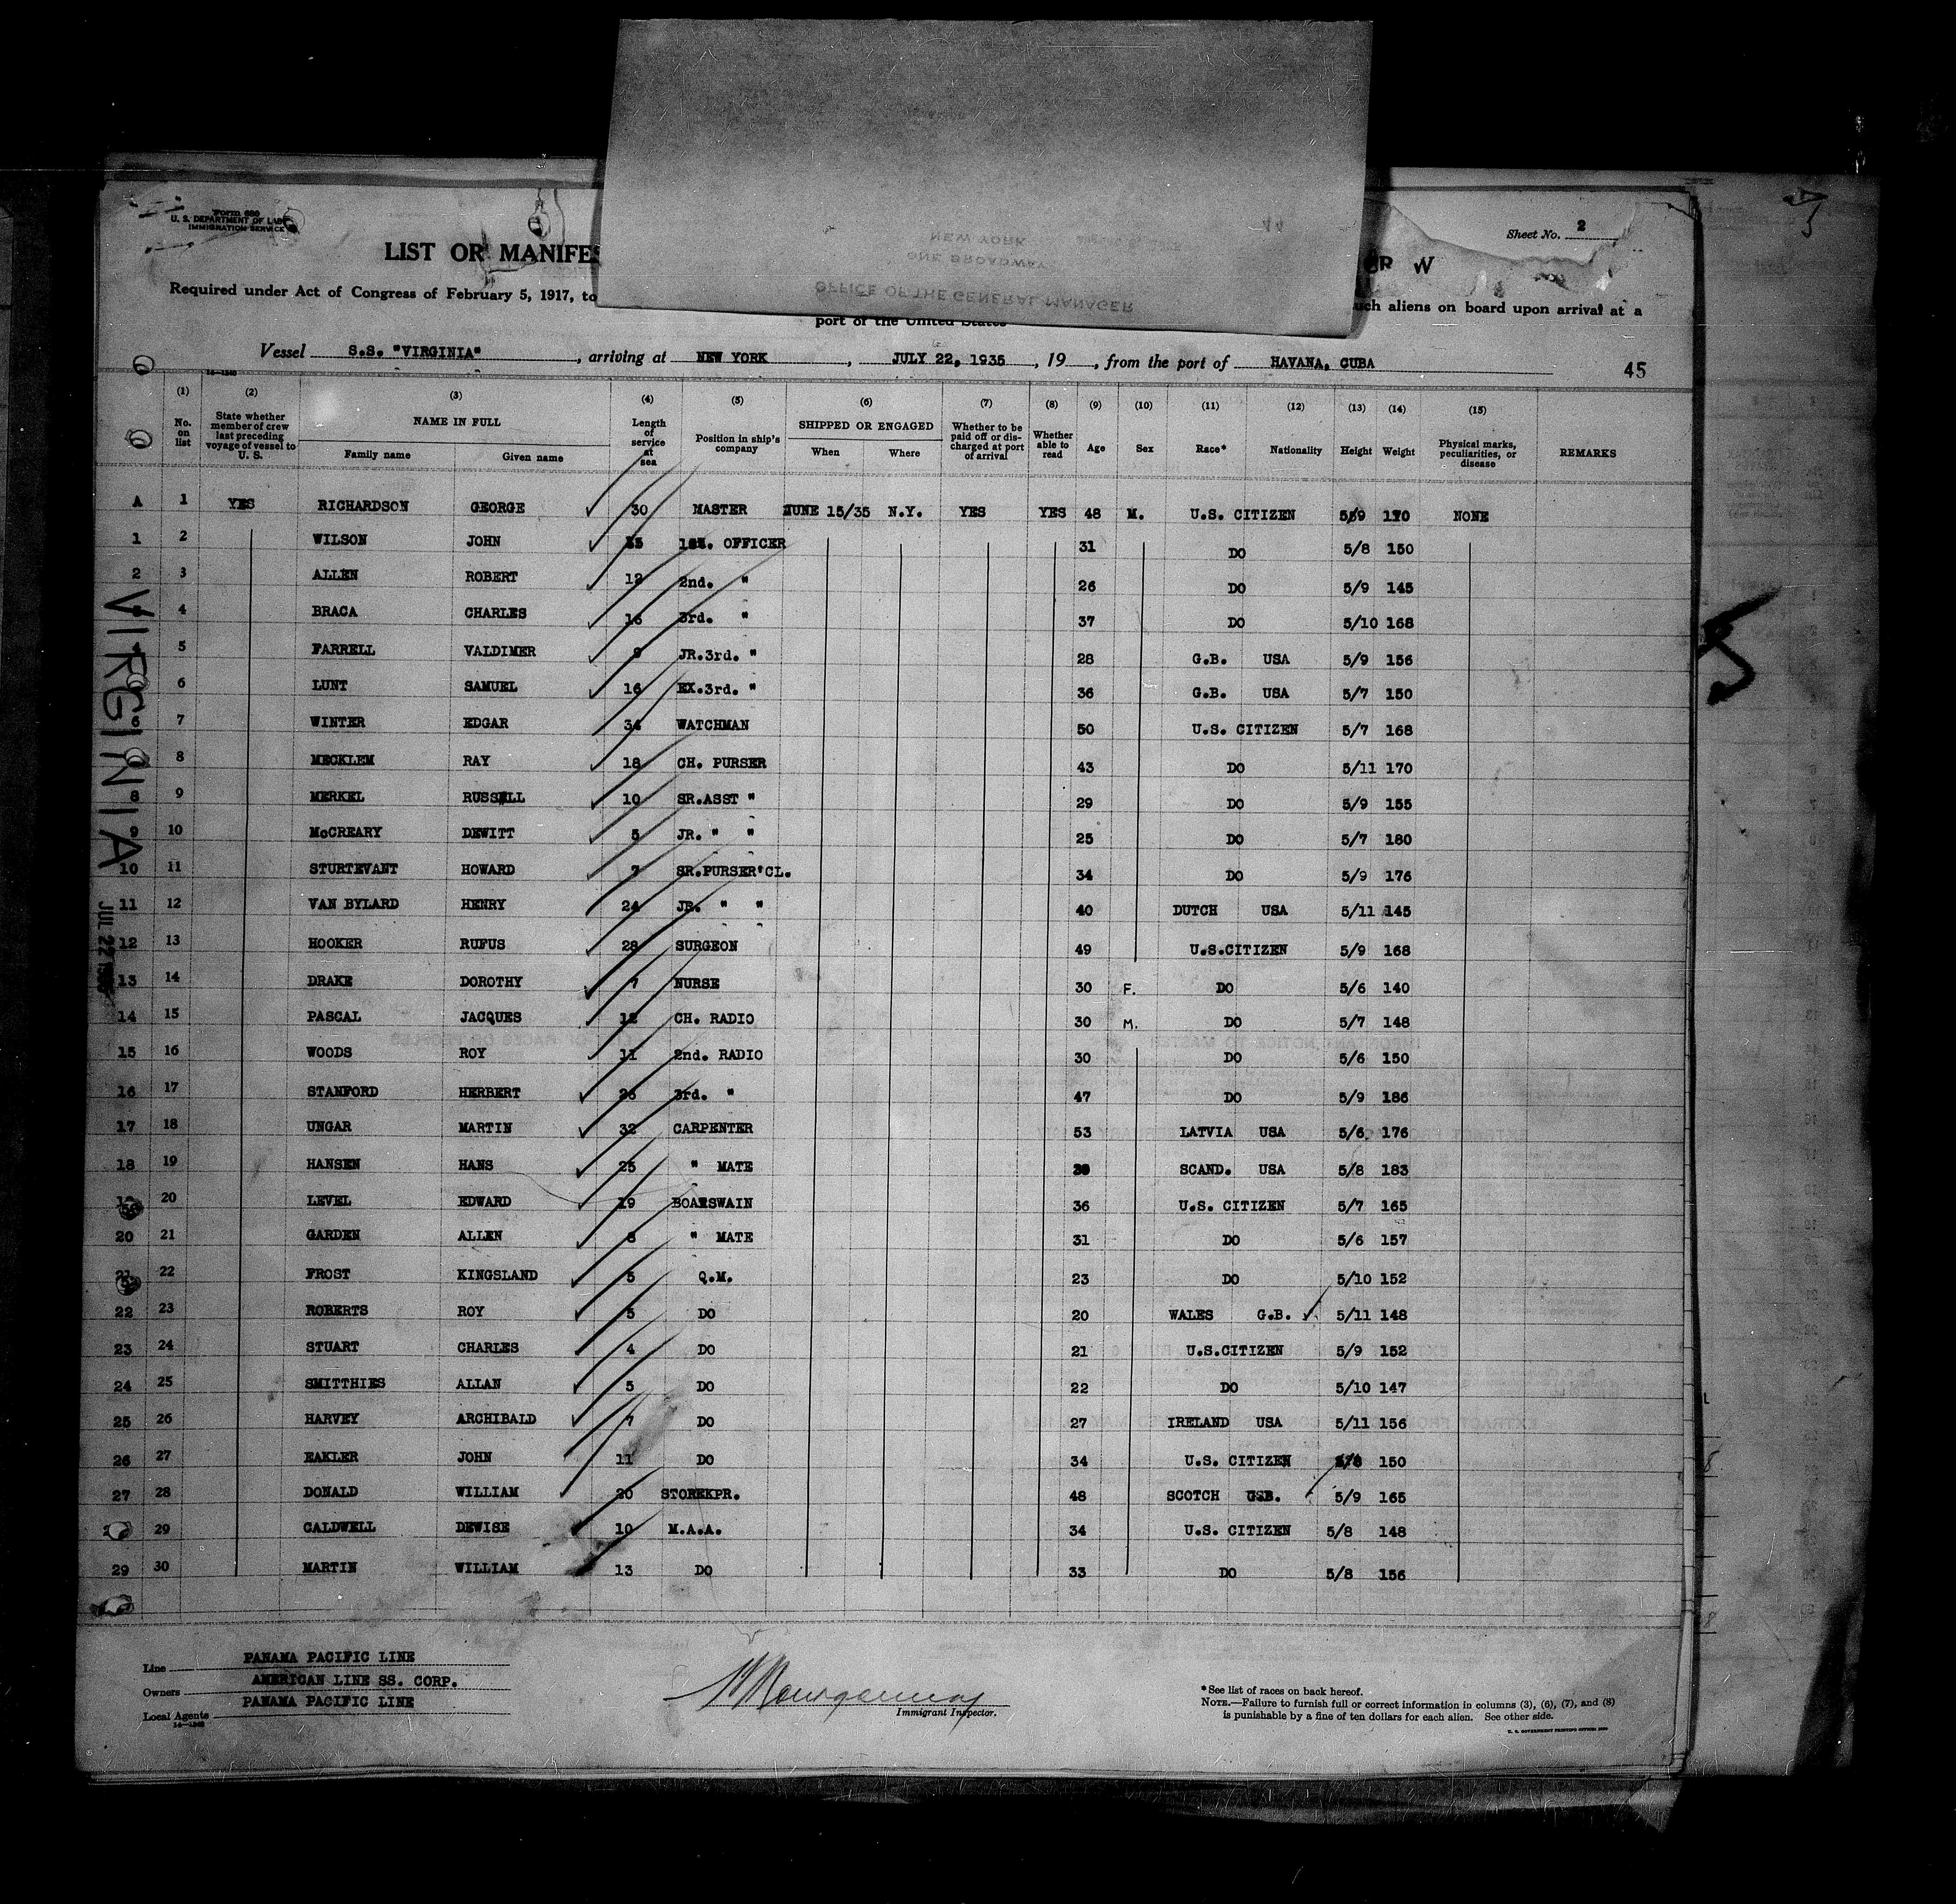 Form 680
U. S. DEPARTMENT OF LABOR
IMMIGRATION SERVICE
Sheet No. 2
LIST OR MANIFES
Required under Act of Congress of February 5, 1917, to
uch aliens on board upon arrival at a
port of the United States
OFFICE OF THE GENERAL MANAGER
ONE BROADWAY
NEW YORK
Vessel S.S. "VIRGINIA", arriving at NEW YORK, JULY 22, 1935, 19, from the port of HAVANA, CUBA
45
(1) (2) (3) (4) (5) (6) (7) (8) (9) (10) (11) (12) (13) (14) (15)
No. on list State whether member of crew last preceding voyage of vessel to U. S. NAME IN FULL Family name Given name Length of service at sea Position in ship's company SHIPPED OR ENGAGED When Where Whether to be paid off or discharged at port of arrival Whether able to read Age Sex Race* Nationality Height Weight Physical marks, peculiarities, or disease REMARKS
A 1 YES RICHARDSON GEORGE 30 MASTER JUNE 15/35 N.Y. YES YES 48 M. U.S. CITIZEN 5/9 170 NONE
1 2 WILSON JOHN 1st. OFFICER 31 DO 5/8 150
2 3 ALLEN ROBERT 12 2nd. " 26 DO 5/9 145
4 BRACA CHARLES 16 3rd. " 37 DO 5/10 168
5 FARRELL VALDIMER 9 JR.3rd. " 28 G.B. USA 5/9 156
6 LUNT SAMUEL 16 EX.3rd. " 36 G.B. USA 5/7 150
6 7 WINTER EDGAR 34 WATCHMAN 50 U.S. CITIZEN 5/7 168
8 MECKLEM RAY 18 CH. PURSER 43 DO 5/11 170
8 9 MERKEL RUSSELL 10 SR.ASST " 29 DO 5/9 155
9 10 McCREARY DEWITT 5 JR. " " 25 DO 5/7 180
10 11 STURTEVANT HOWARD 7 SR.PURSER'CL. 34 DO 5/9 176
11 12 VAN BYLARD HENRY 24 JR. " " 40 DUTCH USA 5/11 145
12 13 HOOKER RUFUS 28 SURGEON 49 U.S.CITIZEN 5/9 168
13 14 DRAKE DOROTHY 7 NURSE 30 F. DO 5/6 140
14 15 PASCAL JACQUES 12 CH. RADIO 30 M. DO 5/7 148
15 16 WOODS ROY 11 2nd. RADIO 30 DO 5/6 150
16 17 STANFORD HERBERT 26 3rd. " 47 DO 5/9 186
17 18 UNGAR MARTIN 32 CARPENTER 53 LATVIA USA 5/6 176
18 19 HANSEN HANS 25 " MATE SCAND. USA 5/8 183
20 LEVEL EDWARD 19 BOATSWAIN 36 U.S. CITIZEN 5/7 165
20 21 GARDEN ALLEN 8 " MATE 31 DO 5/6 157
21 22 FROST KINGSLAND 5 Q.M. 23 DO 5/10 152
22 23 ROBERTS ROY 5 DO 20 WALES G.B. 5/11 148
23 24 STUART CHARLES 4 DO 21 U.S.CITIZEN 5/9 152
24 25 SMITTHIES ALLAN 5 DO 22 DO 5/10 147
25 26 HARVEY ARCHIBALD 7 DO 27 IRELAND USA 5/11 156
26 27 EAKLER JOHN 11 DO 34 U.S. CITIZEN 150
27 28 DONALD WILLIAM 20 STOREKPR. 48 SCOTCH G.B. 5/9 165
29 CALDWELL DEWISE 10 M.A.A. 34 U.S. CITIZEN 5/8 148
29 30 MARTIN WILLIAM 13 DO 33 DO 5/8 156
VIRGINIA
JUL 22
Line PANAMA PACIFIC LINE
Owners AMERICAN LINE SS. CORP.
Local Agents PANAMA PACIFIC LINE
14—1240
Immigrant Inspector.
* See list of races on back hereof.
NOTE.—Failure to furnish full or correct information in columns (3), (6), (7), and (8)
is punishable by a fine of ten dollars for each alien. See other side.
U. S. GOVERNMENT PRINTING OFFICE